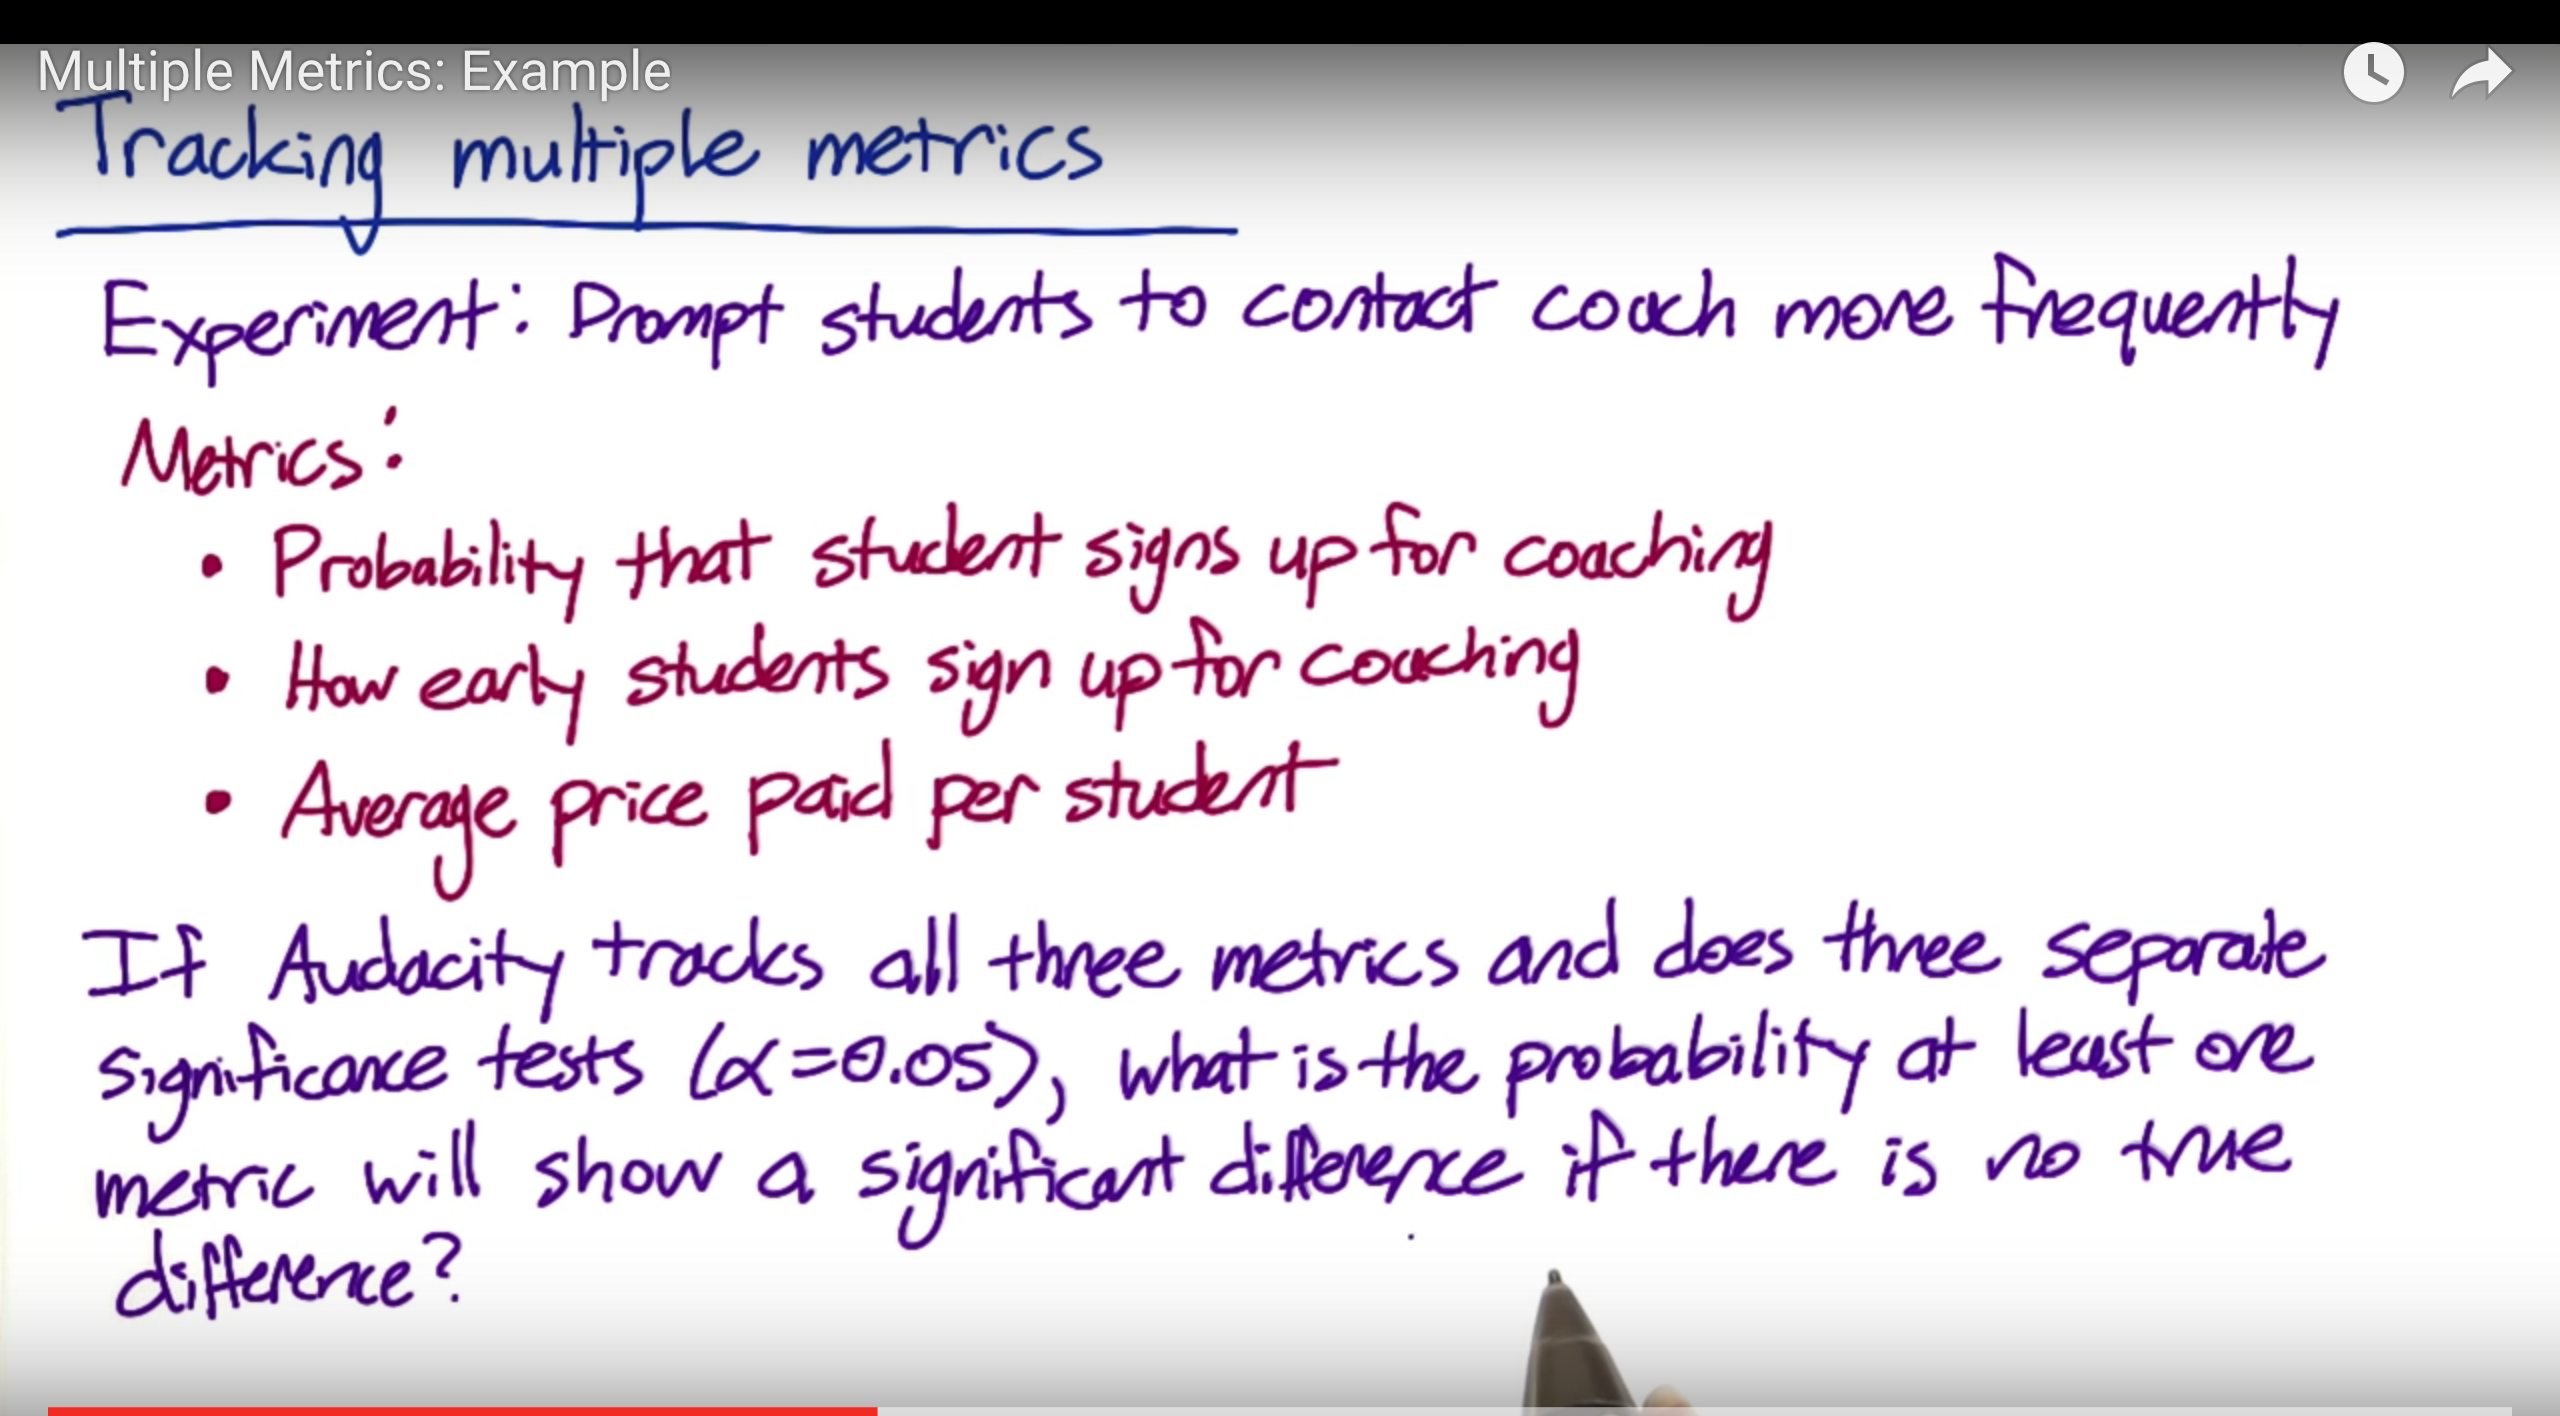 Multiple Metrics: Example
Tracking multiple metrics
Experiment: Prompt students to contact coach more frequently
Metrics:
• Probability that student signs up for coaching
• How early students sign up for coaching
• Average price paid per student
If Audacity tracks all three metrics and does three separate
significance tests (α=0.05), what is the probability at least one
metric will show a significant difference if there is no true
difference?